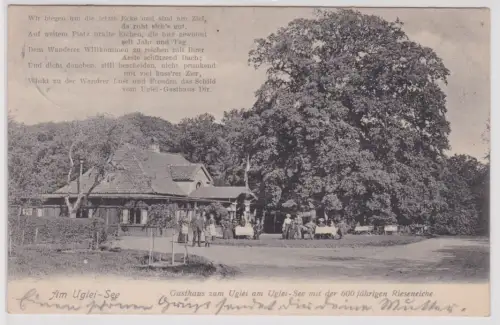 Wir biegen um die letzte Ecke und sind am Ziel,
da ruht sich's gut,
Auf weitem Platz uralte Eichen, die hier gewurzelt
seit Jahr und Tag
Dem Wandrer Willkommen zu reichen mit ihrer
Aeste schützend Dach;
Und dicht daneben, still bescheiden, nicht prunkend
Winkt an der Wandrer Lust und Freuden, das Schild
vom Uglei-Gasthaus Dir.
Am Uglei-See
Gasthaus zum Uglei am Uglei-See mit der 600 jährigen Rieseneiche
Einen schönen Gruß sendet dir deine Mutter.